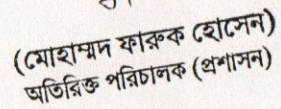 (মোহাম্মদ ফারুক হোসেন)
অতিরিক্ত পরিচালক (প্রশাসন)